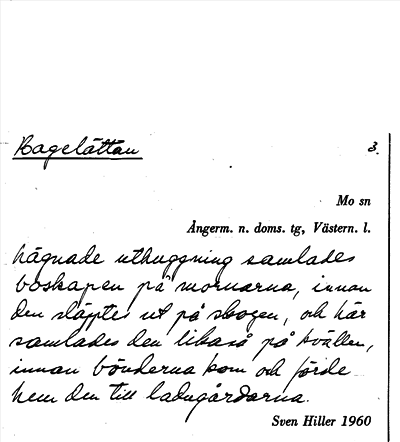 Hagelättan
3.
Mo sn
Ångerm. n. doms. tg, Västern. l.
hägnade uthuggning samlades
boskapen på mornarna, innan
den släptes ut på skogen, och här
samlades den likaså på kvällen,
innan bönderna kom och förde
hem den till ladugårdarna.
Sven Hiller 1960